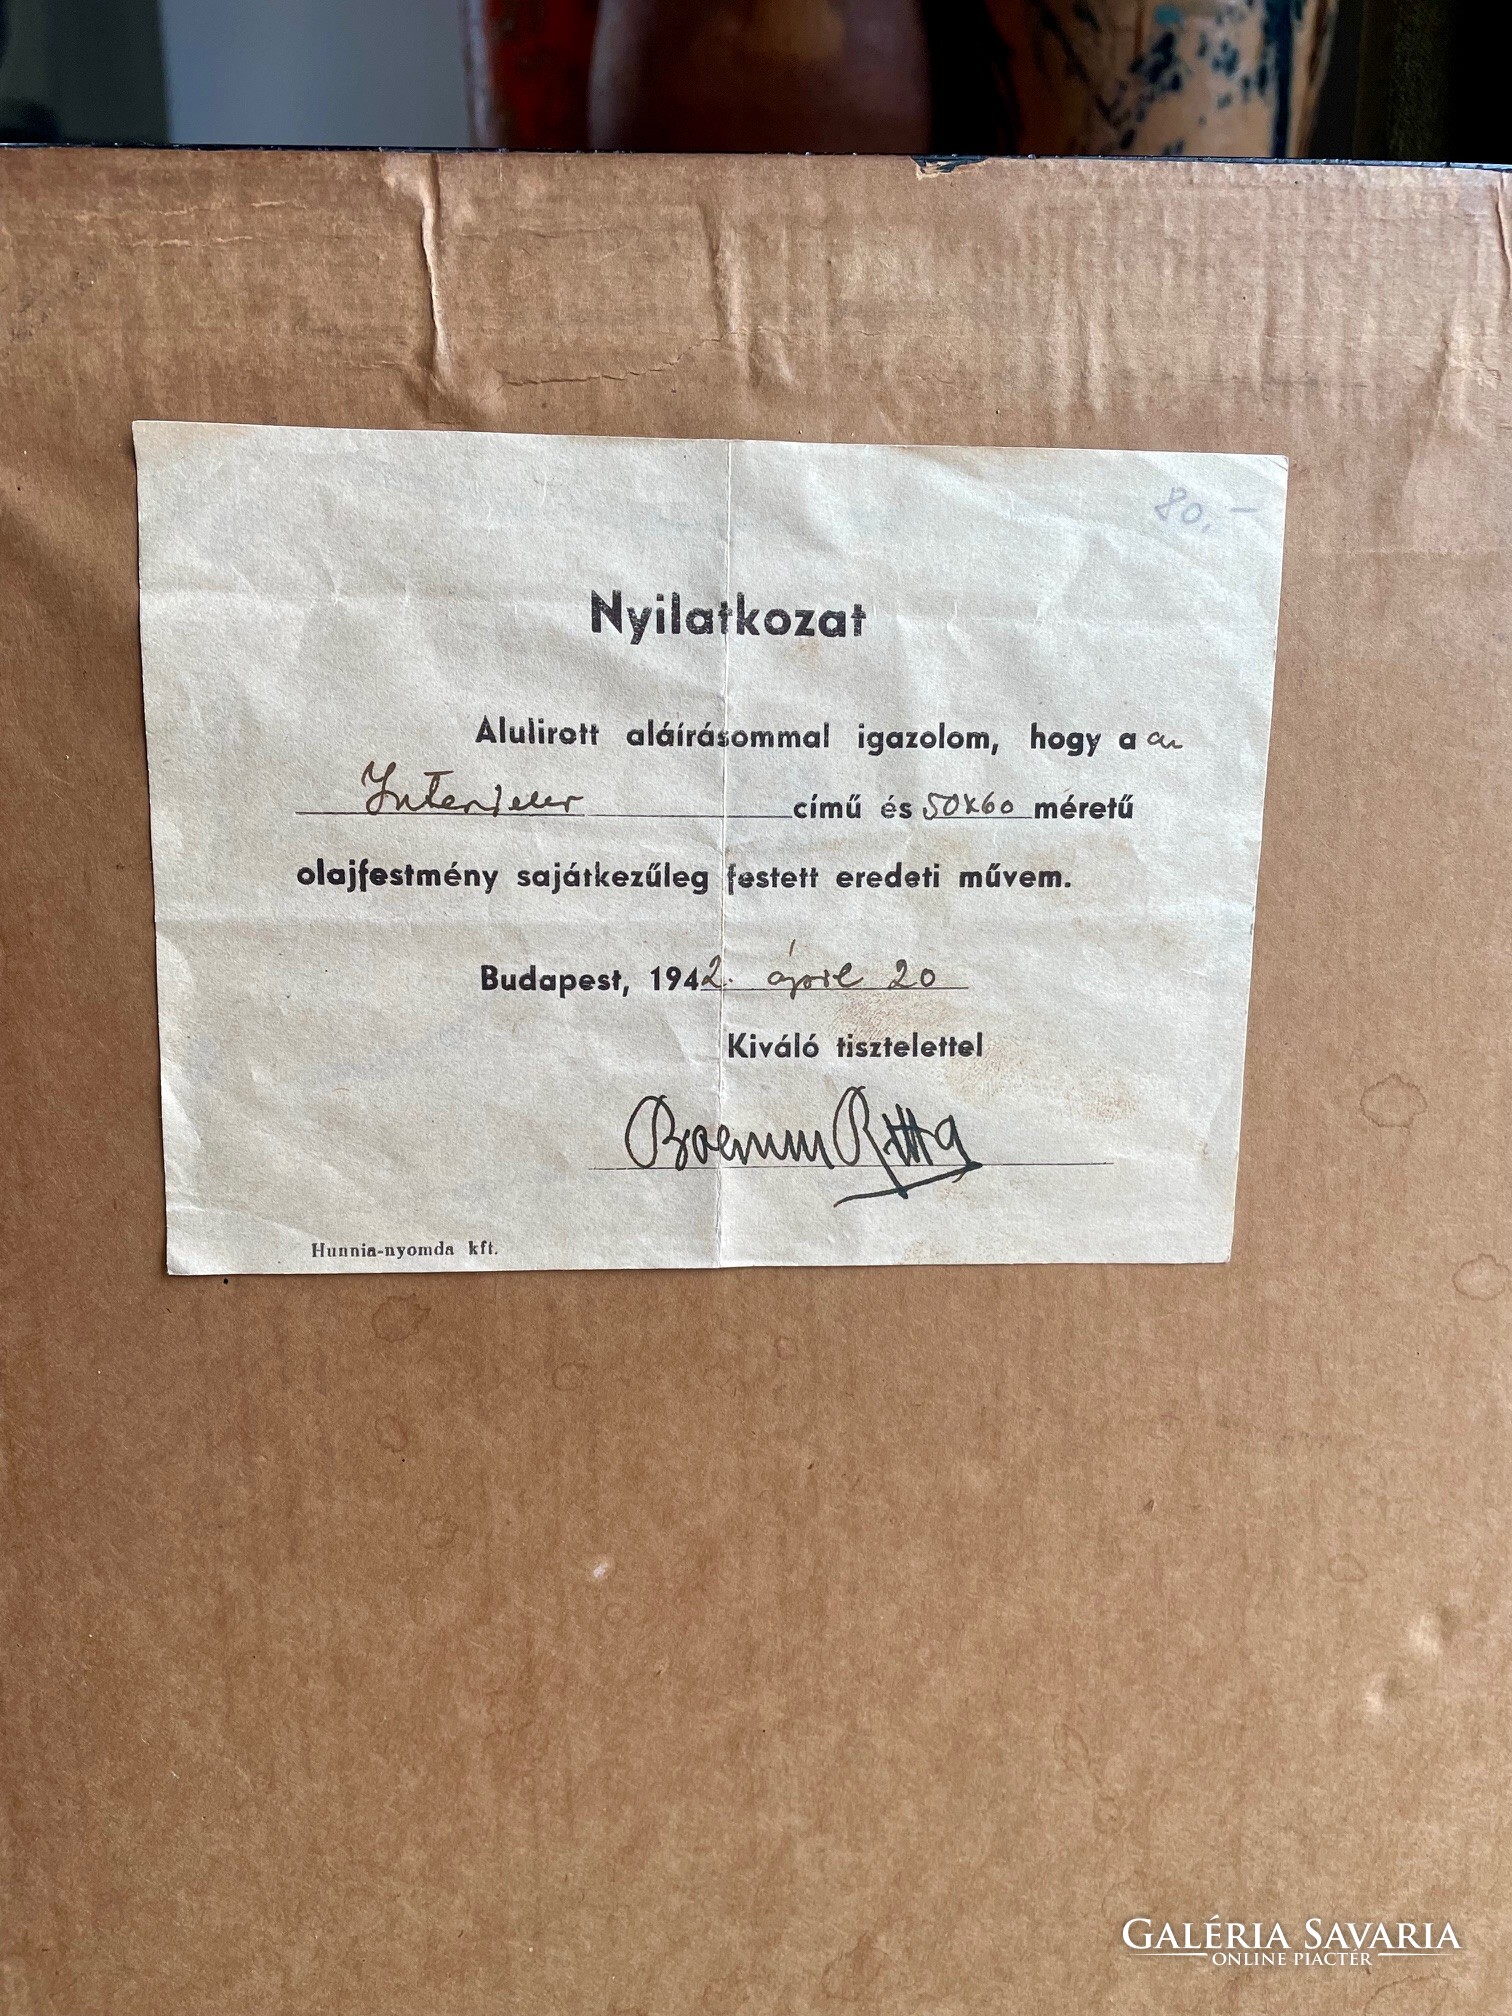 80.-
Nyilatkozat
Alulirott aláírásommal igazolom, hogy a
című és 50x60 méretű
olajfestmény sajátkezűleg festett eredeti művem.
Budapest, 1942. ápril 20
Kiváló tisztelettel
Boemm Ritta
Hunnia-nyomda kft.
GALÉRIA SAVARIA
ONLINE PIACTÉR